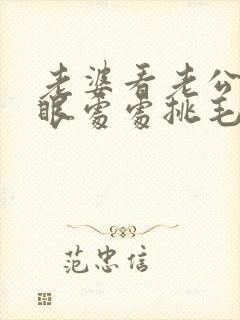 老婆看老公
眼处处挑毛
范忠信